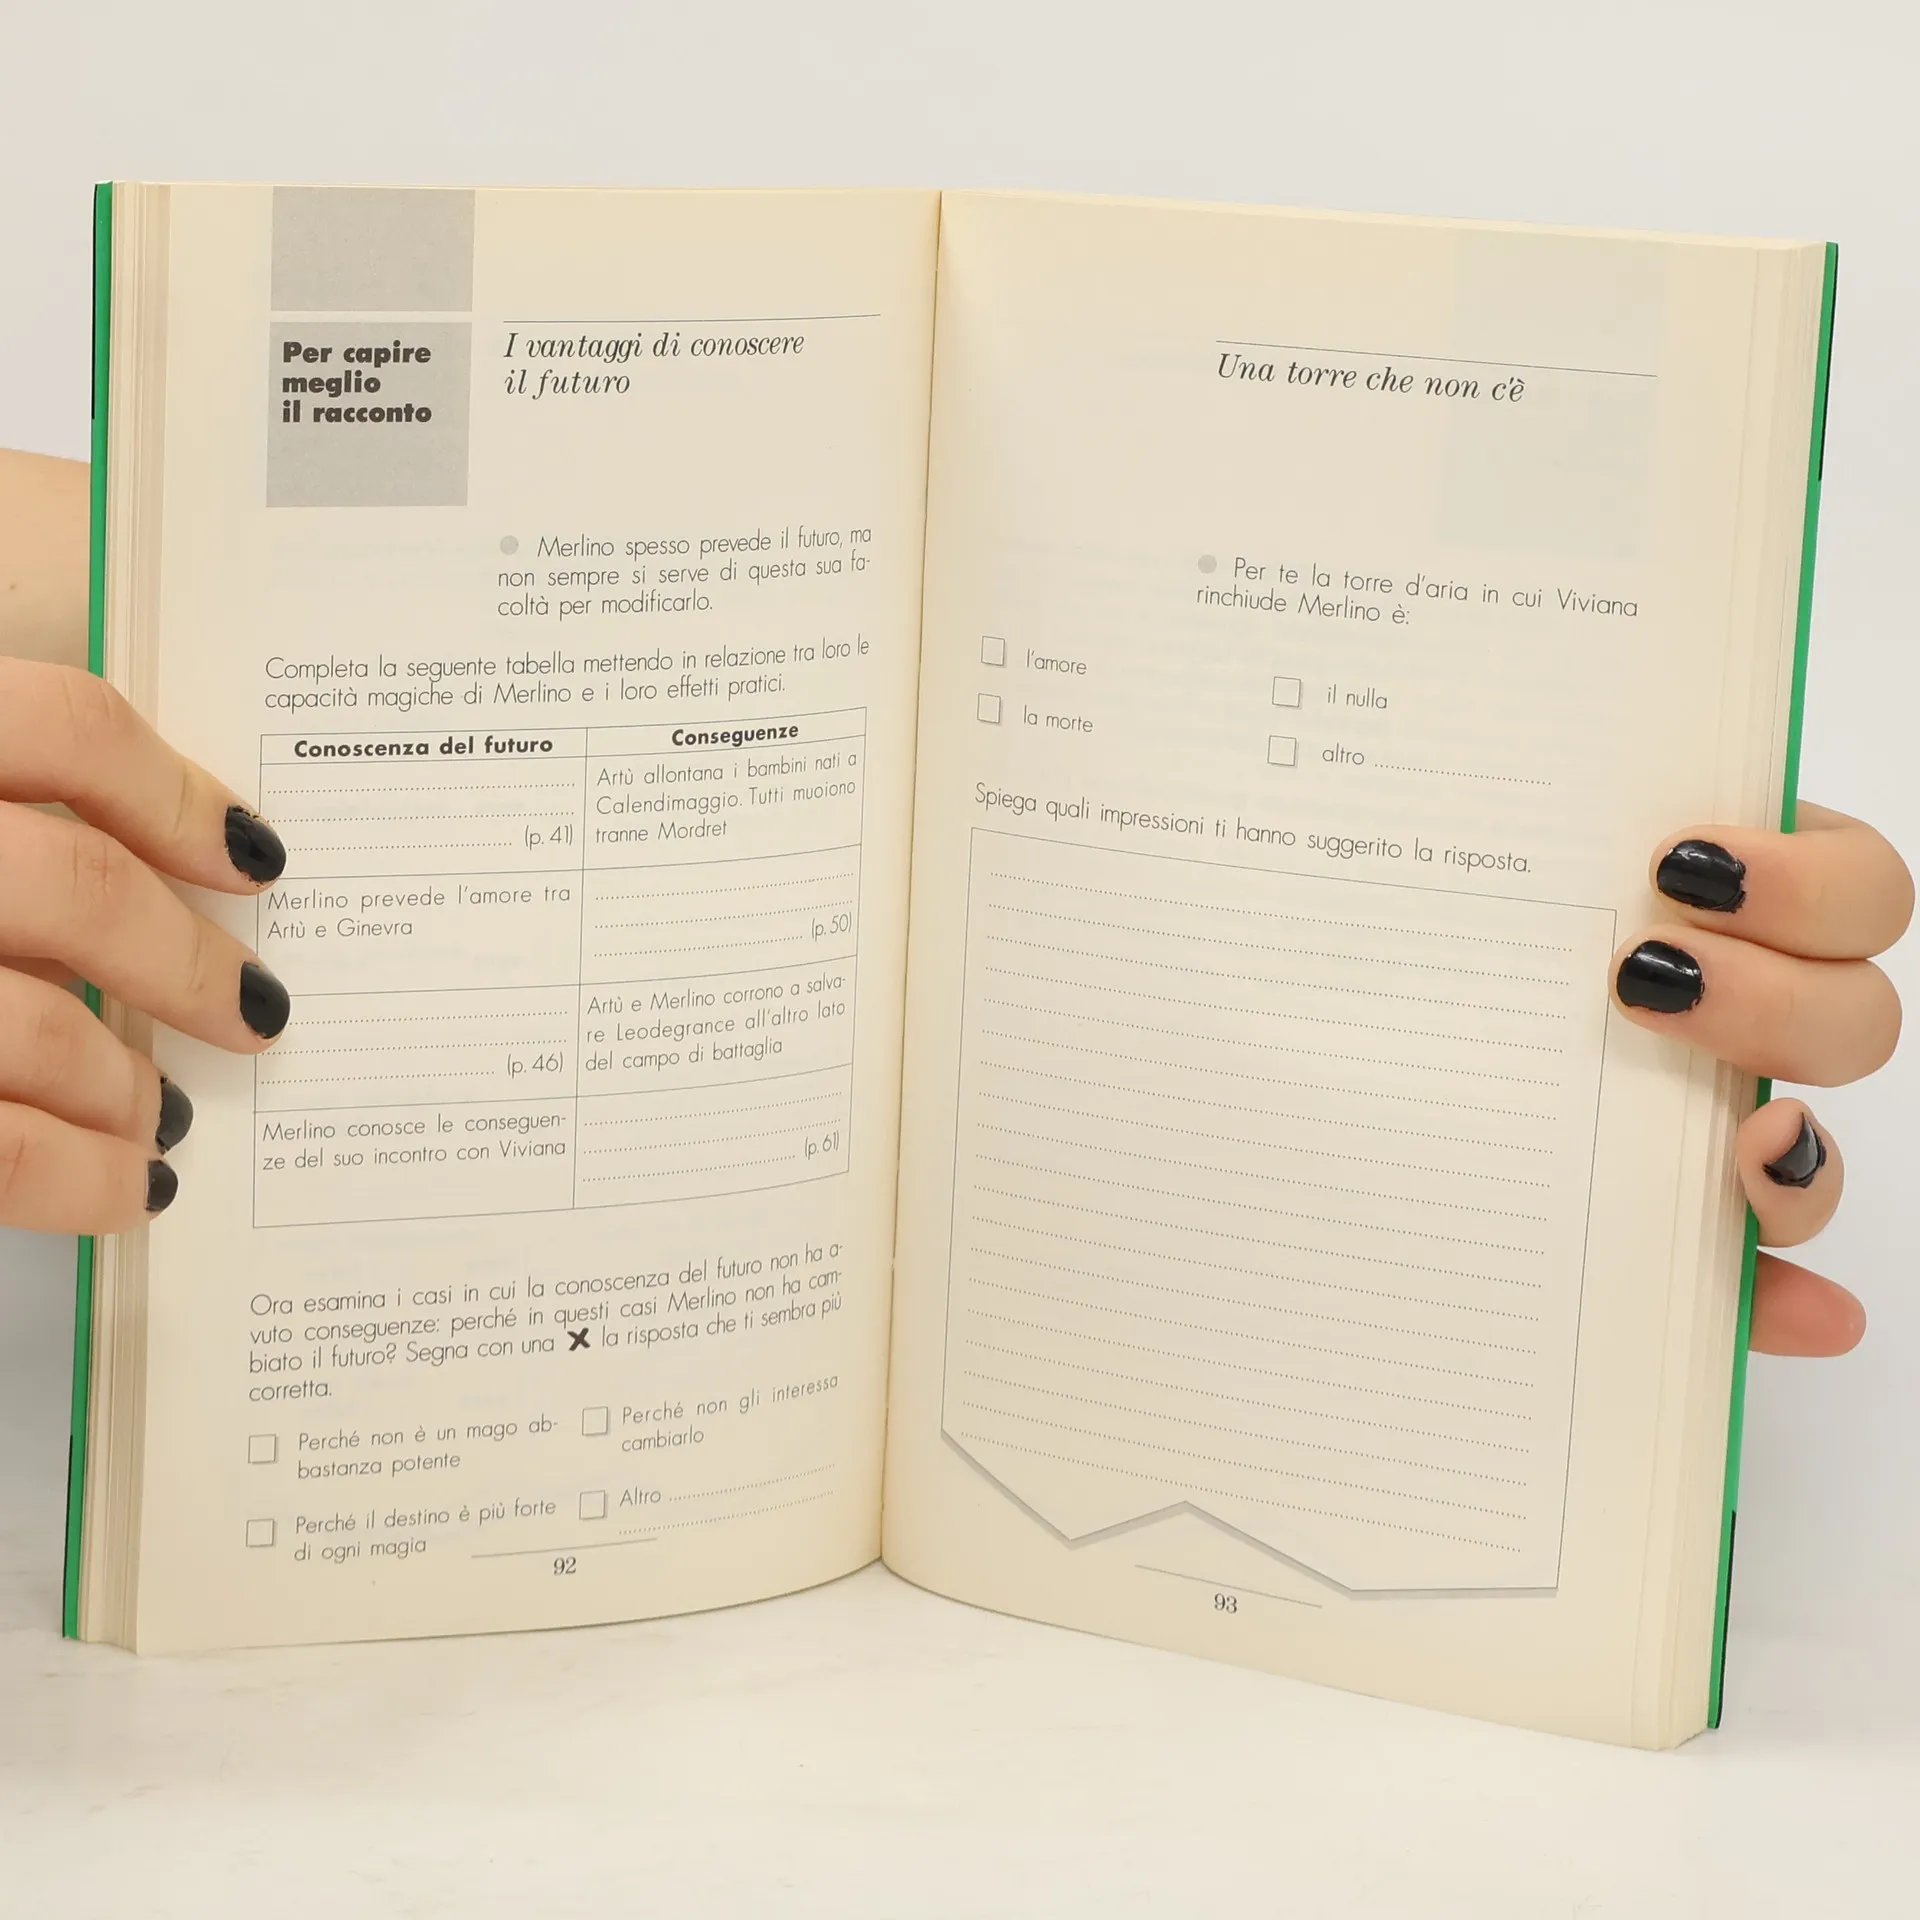 Per capire
meglio
il racconto
I vantaggi di conoscere
il futuro
Merlino spesso prevede il futuro, ma
non sempre si serve di questa sua fa-
coltà per modificarlo.
Completa la seguente tabella mettendo in relazione tra loro le
capacità magiche di Merlino e i loro effetti pratici.
Conoscenza del futuro
Conseguenze
(p. 41)
Artù allontana i bambini nati a
Calendimaggio. Tutti muoiono
tranne Mordret
Merlino prevede l'amore tra
Artù e Ginevra
(p. 50)
(p. 46)
Artù e Merlino corrono a salva-
re Leodegrance all'altro lato
del campo di battaglia
Merlino conosce le conseguen-
ze del suo incontro con Viviana
(p. 61)
Ora esamina i casi in cui la conoscenza del futuro non ha a-
vuto conseguenze: perché in questi casi Merlino non ha cam-
biato il futuro? Segna con una ✗ la risposta che ti sembra più
corretta.
Perché non è un mago ab-
bastanza potente
Perché non gli interessa
cambiarlo
Perché il destino è più forte
di ogni magia
Altro
92
Una torre che non c'è
Per te la torre d'aria in cui Viviana
rinchiude Merlino è:
l'amore
il nulla
la morte
altro
Spiega quali impressioni ti hanno suggerito la risposta.
93